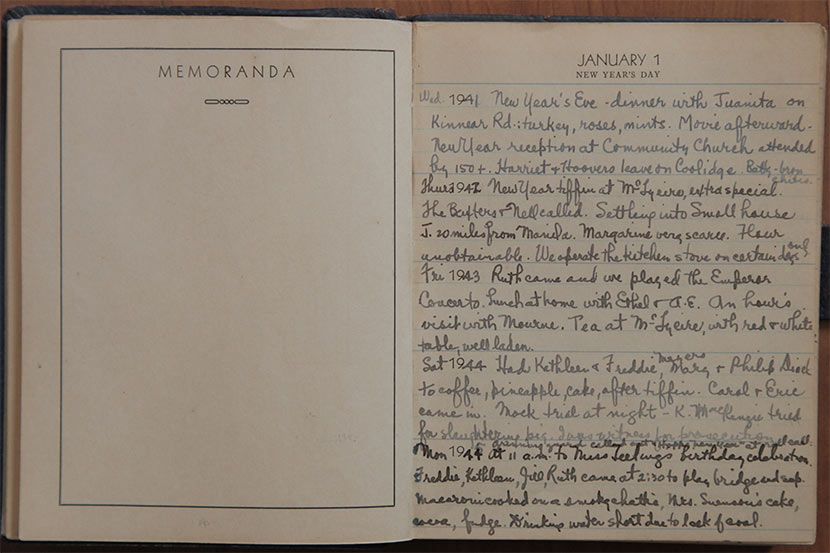 MEMORANDA
JANUARY 1
NEW YEAR'S DAY
Wed. 1941 New Year's Eve - dinner with Juanita on
Kinnear Rd.: turkey, roses, mints. Movie afterward -
New Year reception at Community Church attended
by 150+. Harriet + Hoovers leave on Coolidge.
Thur 1942 New Year tiffin at extra special.
The + Nell called. Settling into Small house
20 miles from Manila. Margarine very scarce. Flour
unobtainable. We operate the kitchen stove on certain days only
Fri 1943 Ruth came and we played the Emperor
Concerto. Lunch at home with Ethel + A.E. An hour's
visit with Mourne. Tea at with red + white
table, well laden.
Sat 1944 Had Kathleen + Freddie, Meyers Mary + Philip
to coffee, pineapple, cake, after tiffin. Carol + Eric
came in. Mock trial at night - K. MacKenzie tried
for slaughtering pig. I was witness for prosecution
called out "Happy New Year" at roll call.
Mon 1944 at 11 a.m. to Miss birthday celebration.
Freddie, Kathleen, Jill, Ruth came at 2:30 to play bridge and sup.
Macaroni cooked on a smoky chattie, Mrs. Swenson's cake,
cocoa, fudge. Drinking water short due to lack of coal.